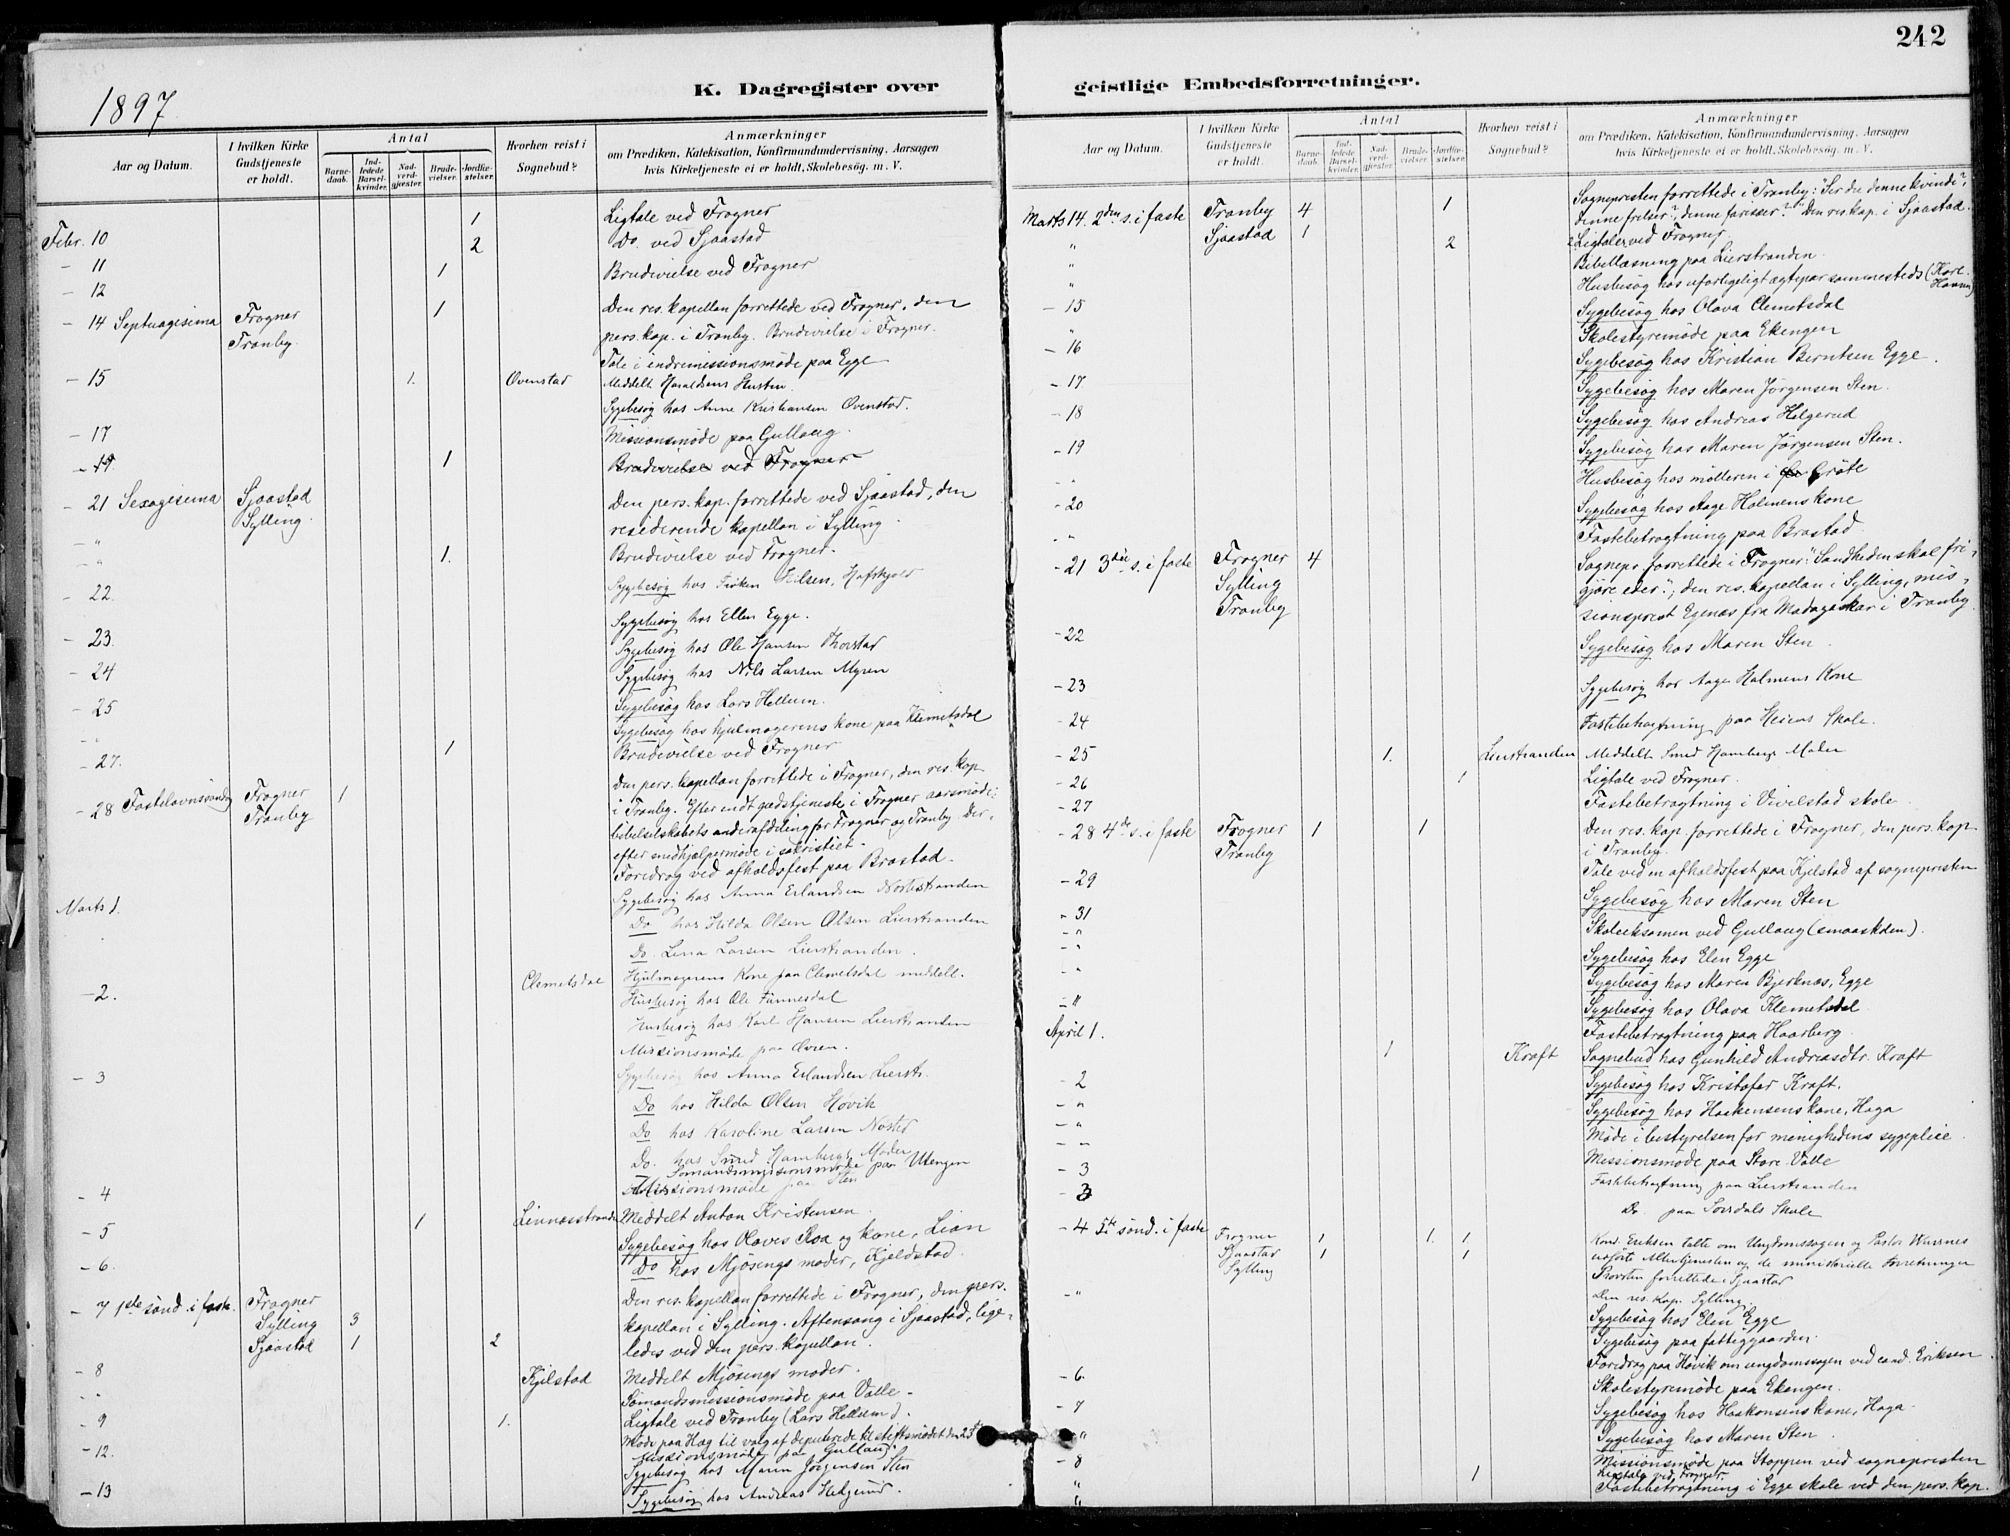 242
1897
K. Dagregister over geistlige Embedsforretninger.
Aar og Datum.
I hvilken Kirke Gudstjeneste er holdt.
Antal
Barnedaab.
Indledede Barselkvinder.
Nadverdgjester
Brudevielser.
Jordfæstelser.
Hvorhen reist i Sognebud?
Anmærkninger
om Prædiken, Katekisation, Konfirmandundervisning, Aarsagen
hvis Kirketjeneste ei er holdt, Skolebesøg, m. V.
Febr. 10 1 Ligtale ved Frogner
2 Do. ved Sjaastad
- 11 1 Brudevielse ved Frogner
- 12
- 14 Septuagesima Frogner 1 Den res. kapellan forrettede ved Frogner, den
Tranby. pers. kap. i Tranby. Brudevielse i Frogner.
Tale i indremissionsmøde paa Egge
- 15 1. Ovenstad Meddelt Haraldsens Hustru.
Sygebesøg hos Anne Kristiansen Ovenstad.
- 17 Missionsmøde paa Gullaug.
- 19. 1 Brudevielse ved Frogner
- 21 Sexagesima Sjaastad Den pers. kap. forrettede ved Sjaastad, den
Sylling. residerende kapellan i Sylling.
- " 1. Brudevielse ved Frogner.
- 22. Sygebesøg hos
Sygebesøg hos Ellen Egge.
- 23. Sygebesøg hos Ole Hansen Thorstad
- 24 Sygebesøg hos Nils Larsen Myren
- 25 Sygebesøg hos Lars Hellum.
Sygebesøg hos hjulmagerens kone paa Klemetsdal
- 27. 1 Brudevielse ved Frogner
- 28 Fastelavnssøndag Frogner 1 Den pers. kapellan forrettede i Frogner, den res. kap
Tranby i Tranby. Efter endt gudstjeneste i Frogner aarsmøde i
bibelselskabets underafdeling for Frogner og Tranby. Der-
efter medhjælpermøde i sakristiet.
Foredrag ved afholdsfest paa Brastad.
Marts 1. Sygebesøg hos Anna Erlandsen Nøstestranden
Do hos Hilda Olsen Olsen Lierstranden
Do. Lina Larsen Lierstranden.
- 2. Clemetsdal Hjulmagerens Kone paa Clemetsdal meddelt.
Husbesøg hos Ole Tinnesdal
Husbesøg hos Karl Hansen Lierstranden
Missionsmøde paa Øvren.
- 3 Sygebesøg hos Anna Erlandsen Lierstr.
Do hos Hilda Olsen Høvik
Do hos Karoline Larsen Nøsted
Do. hos Smed Hambergs Moder
Sømandsmissionsmøde paa Utengen
- 4 Missionsmøde paa Sten
- 5 1 Linnæsstranden Meddelt Anton Kristensen.
Sygebesøg hos Olaves Roa og kone, Lian
- 6. Do hos Mjøsings moder, Kjeldstad.
- 7 1ste sønd. i faste. Frogner Den res. kapellan forrettede i Frogner, den pers.
Sylling 3 kapellan i Sylling. Aftensang i Sjaastad, lige-
Sjaastad 1 2 ledes ved den pers. kapellan.
- 8 Kjelstad Meddelt Mjøsings moder.
Sømandsmissionsmøde paa Valle.
- 9 1. Ligtale ved Tranby (Lars Hellum).
Møde paa Hæg til valg af deputerede til stiftsmødet den 25de
- 12. Missionsmøde paa Gullaug.
Sygebesøg hos Maren Jørgensen Sten
- 13 Sygebesøg hos Andreas Helgerud.
Aar og Datum.
I hvilken Kirke Gudstjeneste er holdt.
Antal
Barnedaab.
Indledede Barselkvinder.
Nadverdgjester
Brudevielser.
Jordfæstelser.
Hvorhen reist i Sognebud?
Anmærkninger
om Prædiken, Katekisation, Konfirmandundervisning, Aarsagen
hvis Kirketjeneste ei er holdt, Skolebesøg, m. V.
Marts 14. 2den s. i faste Tranby 4 1 Sognepresten forrettede i Tranby: "Ser du denne kvinde?,
Sjaastad 1 denne frelser?, denne farisæer?" Den res. kap. i Sjaastad.
" 2 2 Ligtaler ved Frogner.
" Bibellæsning paa Lierstranden.
" Husbesøg hos uforligeligt ægtepar sammesteds (Karl Hansen)
- 15 Sygebesøg hos Olava Clemetsdal
" Skolestyremøde paa Ekengen
- 16 Sygebesøg hos Kristian Berntsen Egge.
- 17 Sygebesøg hos Maren Jørgensen Sten.
- 18 Sygebesøg hos Andreas Helgerud
- 19 Sygebesøg hos Maren Jørgensen Sten.
" Husbesøg hos mølleren i Grøte
- 20 Sygebesøg hos Aage Holmens kone
" Fastebetragtning paa Brastad
- 21 3die s. i faste Frogner 4 Sognepr. forrettede i Frogner: "Sandheden skal fri-
Sylling gjøre eder"; den res. kapellan i Sylling, mis-
Tranby sionsprest Egenæs fra Madagaskar i Tranby.
- 22 Sygebesøg hos Maren Sten.
- 23 Sygebesøg hos Aage Holmens Kone
- 24 Fastebetragtning paa Heiens Skole.
- 25 1. Lierstranden Meddelt Smed Hambergs Moder
- 26 1 Ligtale ved Frogner.
- 27 Fastebetragtning i Vivelstad skole.
- 28 4de s. i faste Frogner 1 1 Den res. kap. forrettede i Frogner, den pers. kap
Tranby i Tranby.
- 29 Tale ved en afholdsfest paa Kjelstad af sognepresten
Sygebesøg hos Maren Sten
- 31 Skoleeksamen ved Gullaug (smaaskolen).
- " Sygebesøg hos Elen Egge
- " Sygebesøg hos Maren Bjerknæs, Egge
- " Sygebesøg hos Olava Klemetsdal
- " Fastebetragtning paa Haarberg.
April 1. 1 Kraft Sognebud hos Gunhild Andreasdtr. Kraft
- 2 Sygebesøg hos Kristofer Kraft.
- " Sygebesøg hos Haakensens kone, Haga
- " Møde i bestyrelsen for menighedens sygepleie.
- " Missionsmøde paa Store Valle
- 3 Fastebetragtning paa Lierstranden
- 3 Do. paa Sørsdals Skole
- 4 5te sønd. i faste Frogner 1 1. 1 Kand. Eriksen talte om Ungdomssagen og Pastor
Sjaastad 1 1 udførte Altertjenesten og de ministerielle Forretninger
Sylling forrettede i Sjaastad
Den res. kap. Sylling.
- " Sygebesøg hos Elen Egge
Sygebesøg paa fattiggaarden.
Foredrag paa Høvik om ungdomssagen ved cand. Eriksen
- 6. Skolestyremøde paa Ekengen.
- 7 Sygebesøg hos Haakonsens kone, Haga.
" Sygebesøg hos Maren Sten.
- 8 Missionsmøde paa Stoppen ved sognepresten
" 1 Ligtale ved Frogner.
" Fastebetragtning i Egge skole ved den pers. kap.